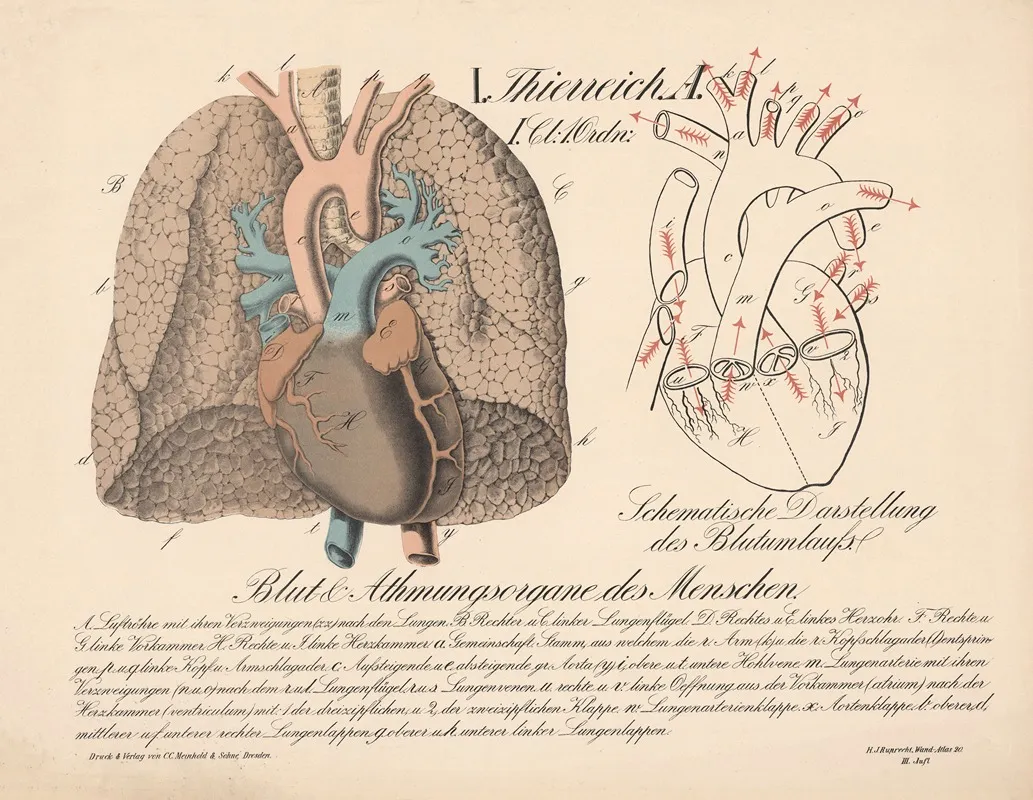 I. Thierreich A.
I. Cl: 1. Ordn:
k
l
A
p
q
a
B
C
e
c
o
n
b
g
s
m
D
E
F
G
H
h
d
J
f
t
y
k
l
p
q
o
a
n
i
o
e
c
G
m
s
F
u
v
2
w
x
H
J
Schematische Darstellung
des Blutumlaufs.
Blut & Athmungsorgane des Menschen.
A. Luftröhre mit ihren Verzweigungen (zz) nach den Lungen. B. Rechter u. C. linker Lungenflügel. D. Rechtes u. E. linkes Herzohr. F. Rechte u.
G. linke Vorkammer. H. Rechte u. J. linke Herzkammer. a. Gemeinschaft. Stamm, aus welchem die r. Arm (k) u. die r. Kopfschlagader (l) entsprin-
gen. p. u. q. linke Kopf u. Armschlagader. c. Aufsteigende u. e. absteigende gr. Aorta (y) i. obere u. t. untere Hohlvene. m. Lungenarterie mit ihren
Verzweigungen (n. u. o) nach dem r. u. l. Lungenflügel. r. u. s. Lungenvenen. u. rechte u. v. linke Oeffnung aus der Vorkammer (atrium) nach der
Herzkammer (ventriculum) mit: 1 der dreizipflichen, u. 2, der zweizipflichen Klappe. w. Lungenarterienklappe. x. Aortenklappe. b. oberer, d.
mittlerer u. f. unterer rechter Lungenlappen. g. oberer u. h. unterer linker Lungenlappen.
Druck & Verlag von C.C. Meinhold & Sohne, Dresden.
H. J. Ruprecht, Wand-Atlas 20.
III. Aufl.